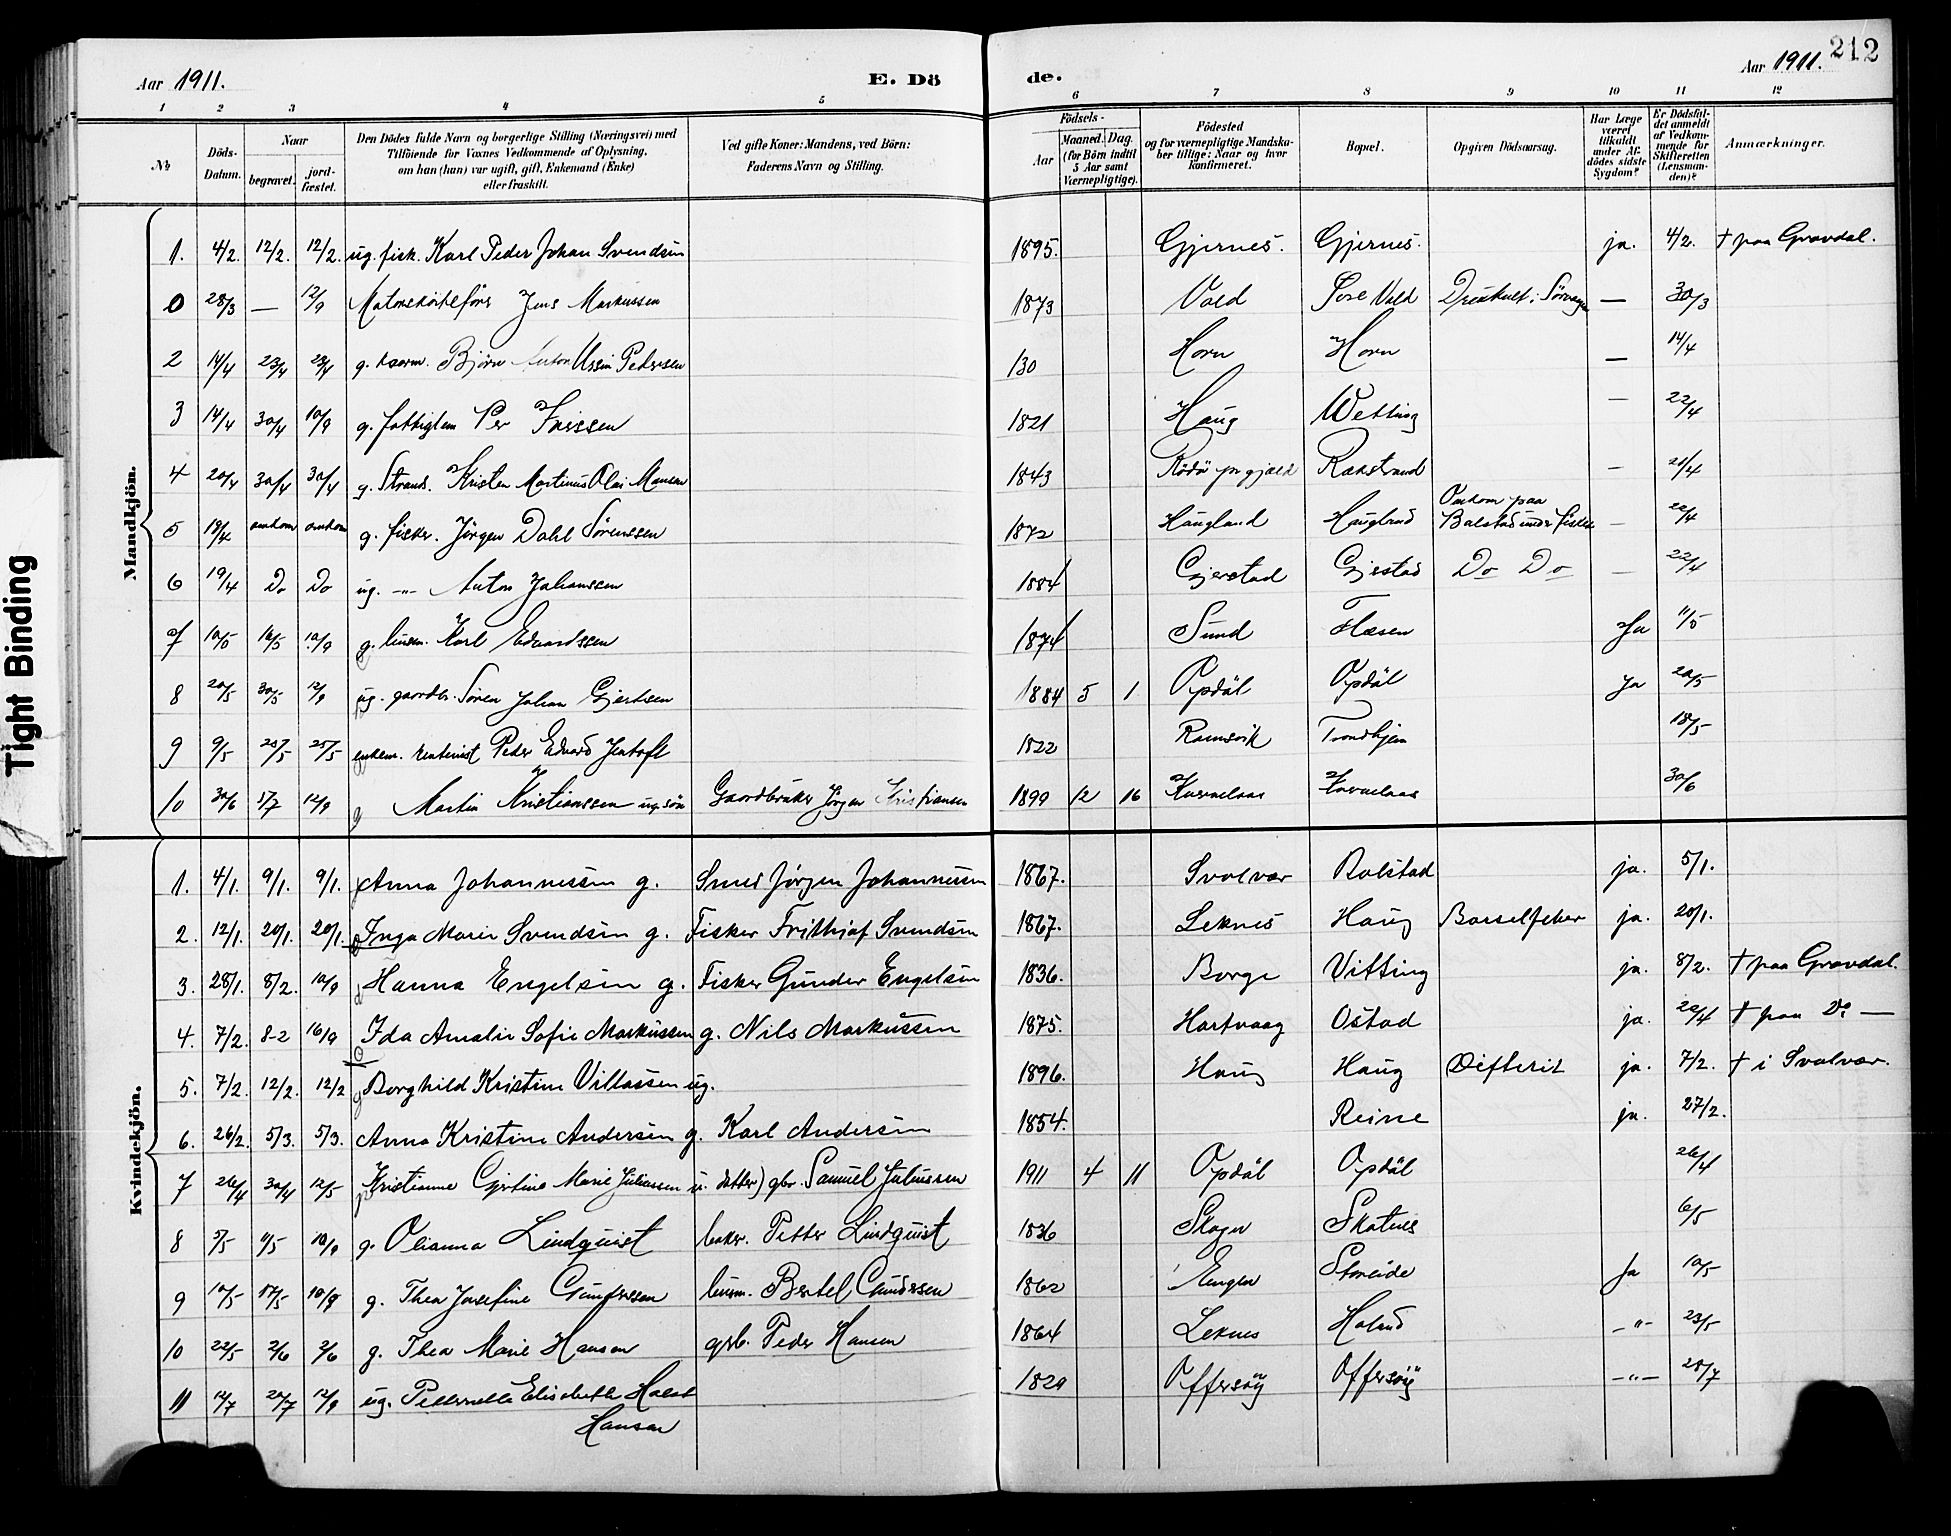 Aar 1911. E. Dö
de. Aar 1911. 212
1 2 3 4 5 6 7 8 9 10 11 12
№ Döds-Datum. Naar begravet. jord-fæstet. Den Dödes fulde Navn og borgerlige Stilling (Næringsvei) med Tilföiende for Voxnes Vedkommende af Oplysning, om han (hun) var ugift, gift, Enkemand (Enke) eller fraskilt. Ved gifte Koner: Mandens, ved Börn: Faderens Navn og Stilling. Födsels- Aar Maaned. Dag. (for Börn indtil 5 Aar samt Værnepligtige). Födested og for værnepligtige Mandskaber tillige: Naar og hvor konfirmeret. Bopæl. Opgiven Dödsaarsag. Har Læge været tilkaldt under Afdödes sidste Sygdom? Er Dödsfaldet anmeldt af Vedkommende for Skifteretten (Lensmanden)? Anmærkninger.
Mandkjön.
1. 4/2. 12/2. 12/2. ug. fisk. Karl Peder Johan Svendsen 1895. Gjernes. Gjernes. ja. 4/2. † paa Gravdal.
0 28/3 — 12/9 Jens Markussen 1873 Vold Sore Vold — 30/3
2 14/4 23/4 23/4 g. Bjørn Anton Ussin Pedersen 130 Horn Horn — 14/4
3 14/4 30/4 10/9 g. fattiglem Per 1821 Haug Wetting — 22/4
4 20/4 30/4 30/4 g. Strands. Kristen Martinus Olai Hansen 1843 Rödö Rakstrand — 21/4
5 18/4 omkom omkom g. fisker. Jörgen Dahl Sörenssen 1872 Haugland Haugland Omkom paa Balstad under fiskeri — 22/4
6 19/4 Do Do ug. -"- Anton Johanssen 1884 Gjerstad Gjerstad Do Do — 22/4
7 10/5 16/5 10/9 g. Karl Edvardssen 1874 Sund Flæsen Ja 11/5
8 20/5 30/5 12/9 ug. gaardbr. Sören Johan Gjertsen 1884 5 1 Opdöl Opdöl Ja 20/5
9 9/5 25/5 25/5 enkem. rentenist Peder Edvard Jentoft 1822 Ramsvik Trondhjem 18/5
10 30/6 5/7 12/9 Martin Kristianssen ug. sön Gaardbruker Jörgen Kristiansen 1899 12 16 30/6
Kvindekjön.
1. 4/1. 9/1. 9/1. Anna Johannessen g. Smed Jörgen Johannessen 1867. Svolvær Balstad ja. 5/1.
2. 12/1. 20/1. 20/1. Inga Marie Svendsen g. Fisker Frithjof Svendsen 1867. Leknes Haug Barselfeber ja. 20/1.
3. 28/1. 8/2. 10/9 Hanna Engelsen g. Fisker Gunder Engelsen 1836. Borge Vitting ja. 8/2. † paa Gravdal.
4. 7/2. 8-2 16/9 Ida Amalie Sofie Markussen g. Nils Markussen 1875. Hartvaag Ostad ja. 22/4 † paa Do —
5. 7/2. 12/2. 12/2 Borghild Kristine Villassen ug. 1896. Haug Haug Difterit ja. 7/2. † i Svolvær.
6. 26/2. 5/3. 5/3. Anna Kristine Andersen g. Karl Andersen 1854. Reine ja. 27/2.
7 26/4 30/4 12/5 Kristianne Gjertine Marie Juliussen u. datter) gbr. Samuel Juliussen 1911 4 11 Opdöl Opdöl 26/4
8 5/5 11/5 10/9 g. Olianna Lindquist Petter Lindquist 1836 Skotnes 6/5
9 10/5 17/5 10/9 g. Thea Josefine Gundersen Bertel Gundersen 1862 Engen Storeide Ja 10/5
10 22/5 2/6 2/6 g. Thea Marie Hansen grb. Peder Hansen 1864 Leknes -"- 23/5
11 12/7 20/7 12/9 ug. Petternella Elisabeth Holst 1829 Offersöy Offersöy -"- 28/7
Hansen
Tight Binding